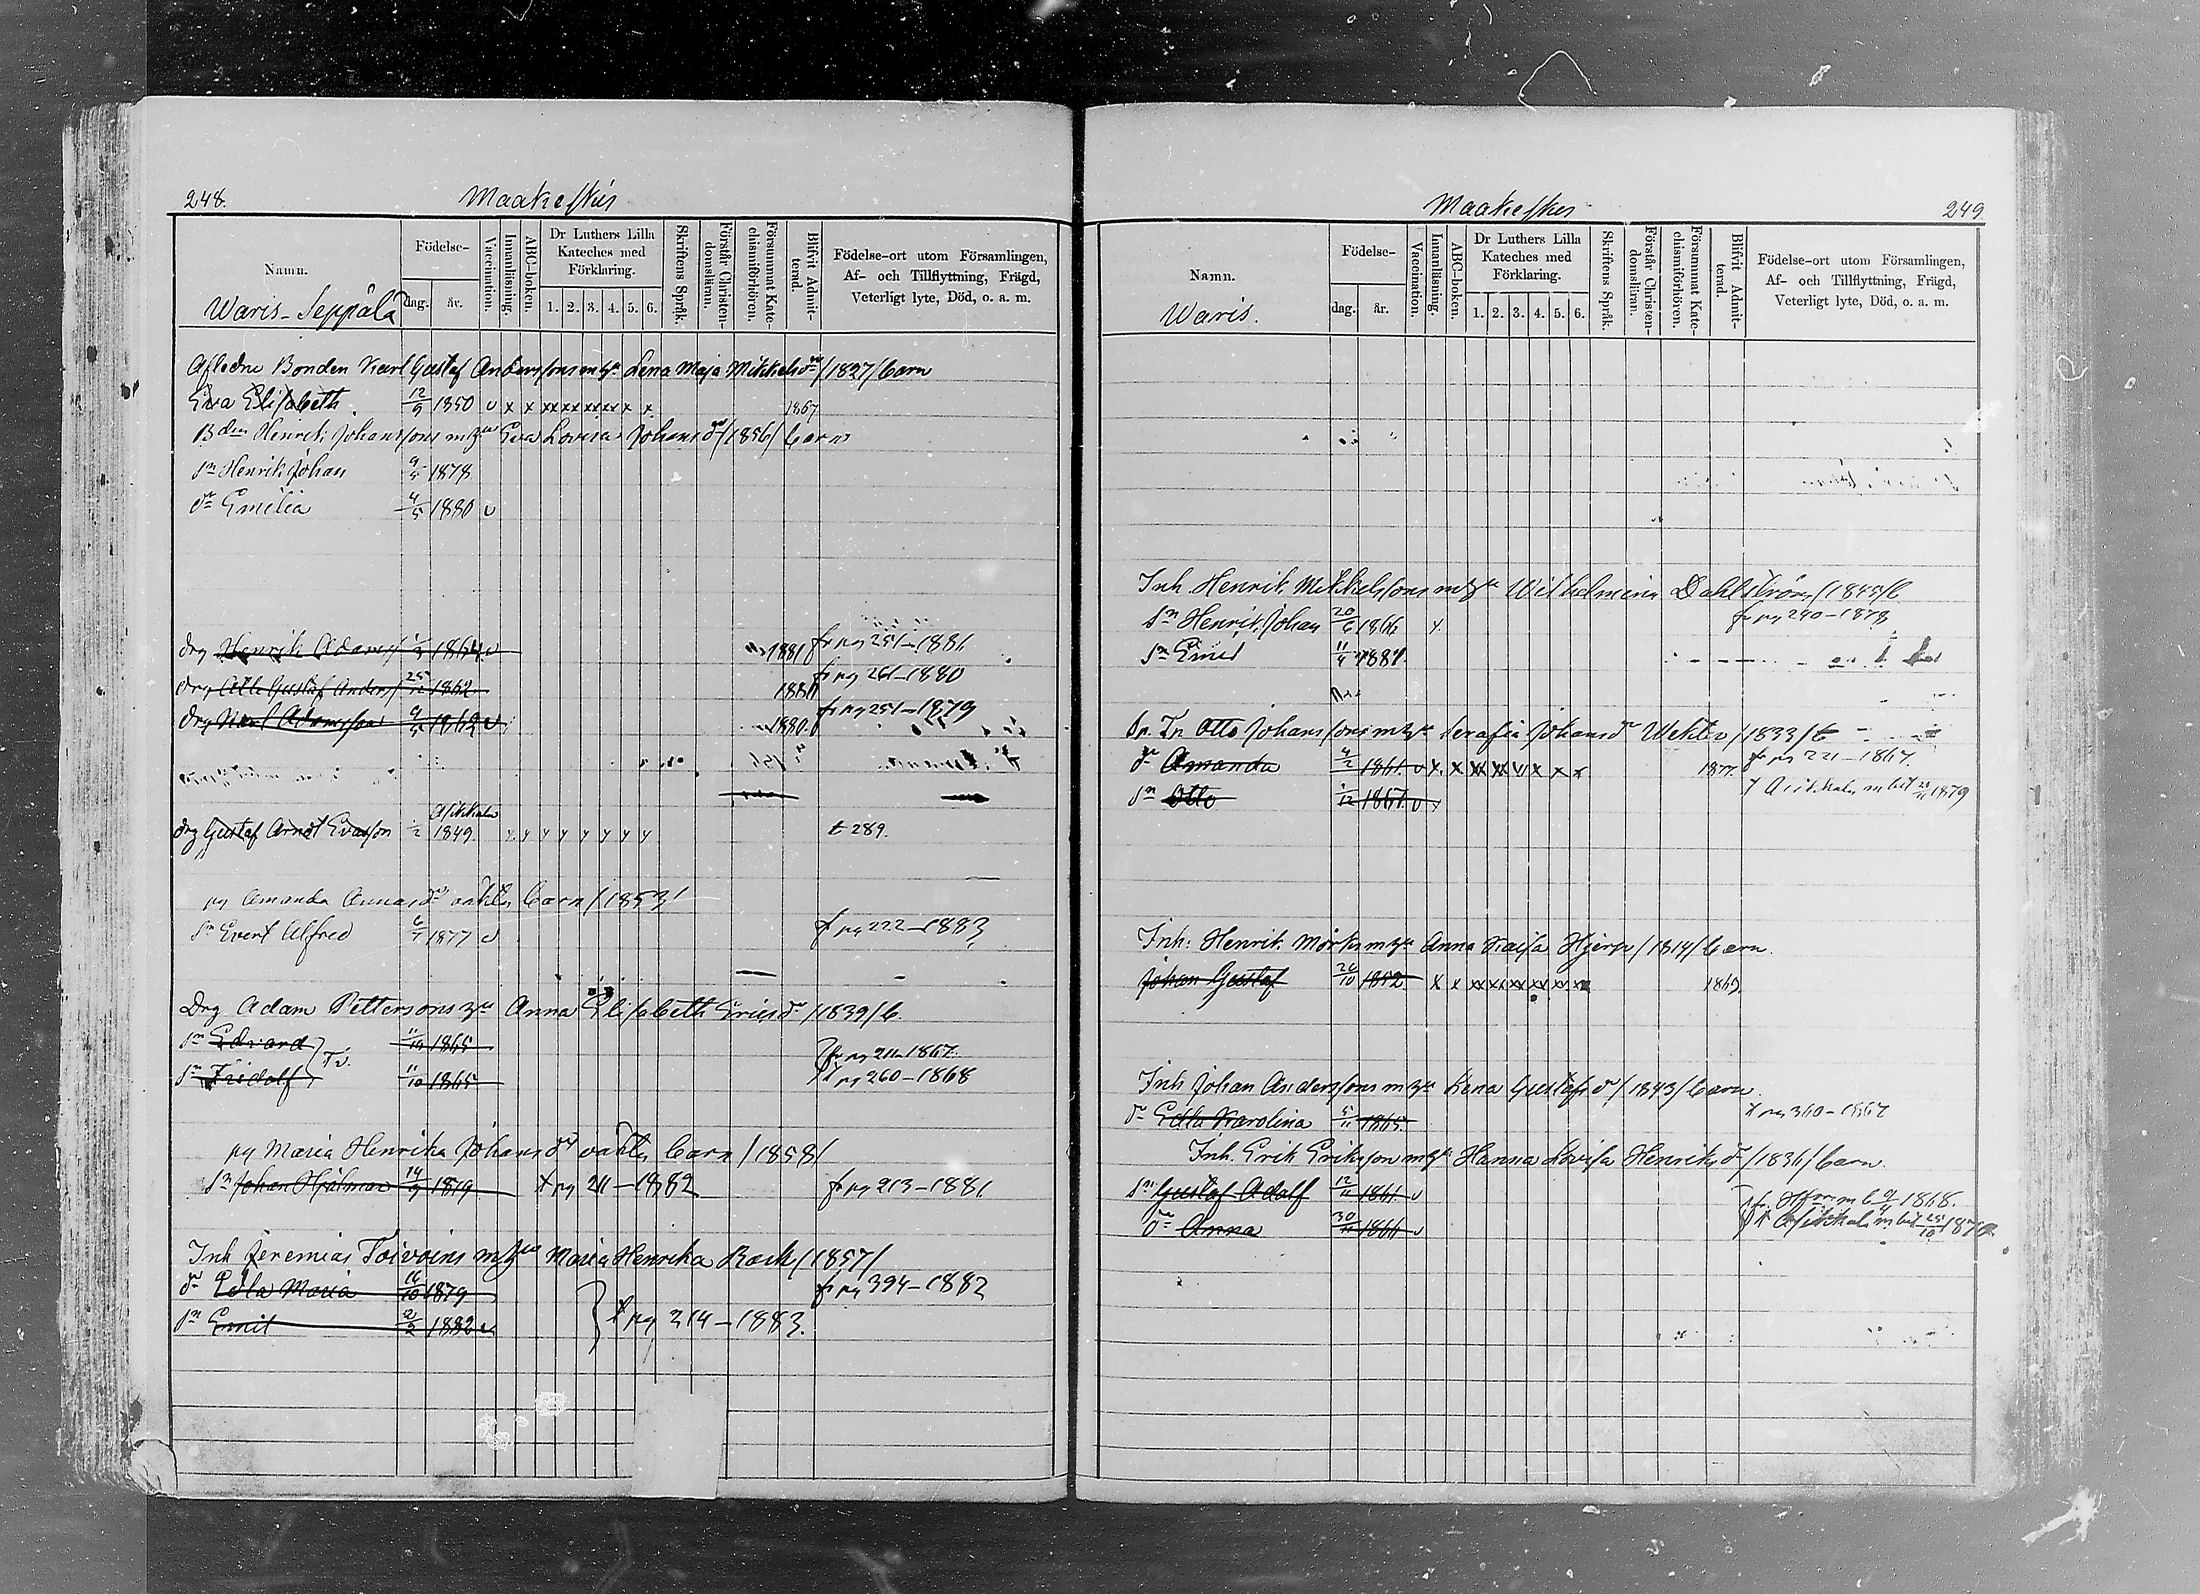 248.
Maakeskus
Namn.
Födelse-
dag.
år.
Vaccination.
Innanläsning.
ABC-boken.
Dr Luthers Lilla
Kateches med
Förklaring.
1. 2. 3. 4. 5. 6.
Skriftens Språk.
Förstår Christen-
domsläran.
Försummat Kate-
chismiförhören.
Blifvit Admit-
terad.
Födelse-ort utom Församlingen,
Af- och Tillflyttning, Frägd,
Veterligt lyte, Död, o. a. m.
Waris-Seppälä
Afledne Bonden Karl Gustaf Anderssons m hu Lena Maja Mikkelsdr /1827/ barn
Eva Elisabeth 12/9 1850 v x x xx xx xx xx x x 1867
Bden Henrik Johanssons m hu Eva Lovisa Johansdr /1856/ barn
sn Henrik Johan 9/5 1878
dr Emilia 4/5 1880 v
drg Henrik Adamss 1/3 1864 v 1881 fr pg 251-1881
drg Otto Gustaf Anderss 25/12 1862 1880 fr pg 261-1880
drg Karl Adamsson 9/5 1862 v 1880 fr pg 251-1879
Asikkala
drg Gustaf Arndt Evasson 1/2 1849 y y y y y y y y t 289.
pg Amanda Annasdr oäkta barn /1853/
sn Evert Alfred 6/7 1877 v fr pg 222-1883
Drg Adam Petterssons hu Anna Elisabeth Ericsdr /1839/ b.
sn Edvard 11/10 1865 Tv. fr pg 211-1867.
sn Fridolf 11/10 1865 t pg 260-1868
pg Maria Henrika Johansdr oäkta barn /1858/
sn Johan Hjalmar 14/9 1879 t pg 211-1882 fr pg 213-1881
Inh Jeremias Toivoins m hu Maria Henrika Rask /1857/
dr Edla Maria 16/10 1879 fr pg 394-1882
sn Emil 2/2 1882 v t pg 214-1883.
Maakeskus
249
Namn.
Födelse-
dag.
år.
Vaccination.
Innanläsning.
ABC-boken.
Dr Luthers Lilla
Kateches med
Förklaring.
1. 2. 3. 4. 5. 6.
Skriftens Språk.
Förstår Christen-
domsläran.
Försummat Kate-
chismiförhören.
Blifvit Admit-
terad.
Födelse-ort utom Församlingen,
Af- och Tillflyttning, Frägd,
Veterligt lyte, Död, o. a. m.
Waris.
Inh Henrik Mikkelssons m hu Wilhelmina Dahlström /1843/ b
sn Henrik Johan 20/6 1866 y. fr pg 240-1878
sn Emil 11/4 1881.
Otto Johanssons m hu Serafia Johansdr /1833/ b
dr Amanda 4/2 1861 v x x xx xx v x x x 1877. fr pg 221-1867.
sn Otto 1/12 1867 v t Asikkala m bet 1879
Inh: Henrik Mörks m hu Anna Kajsa Hjerp /1814/ barn.
Johan Gustaf 26/10 1852 x x xx xx xx xx xx x 1869.
Inh Johan Anderssons m hu Lena Gustafsdr /1843/ barn.
dr Edla Karolina 5/11 1865 t pg 360-1867
Inh. Erik Erikssons m hu Hanna Lovisa Henriksdr /1836/ barn.
sn Gustaf Adolf 12/11 1861 v 1868.
dr Anna 30/11 1866 v t Asikkala m bet